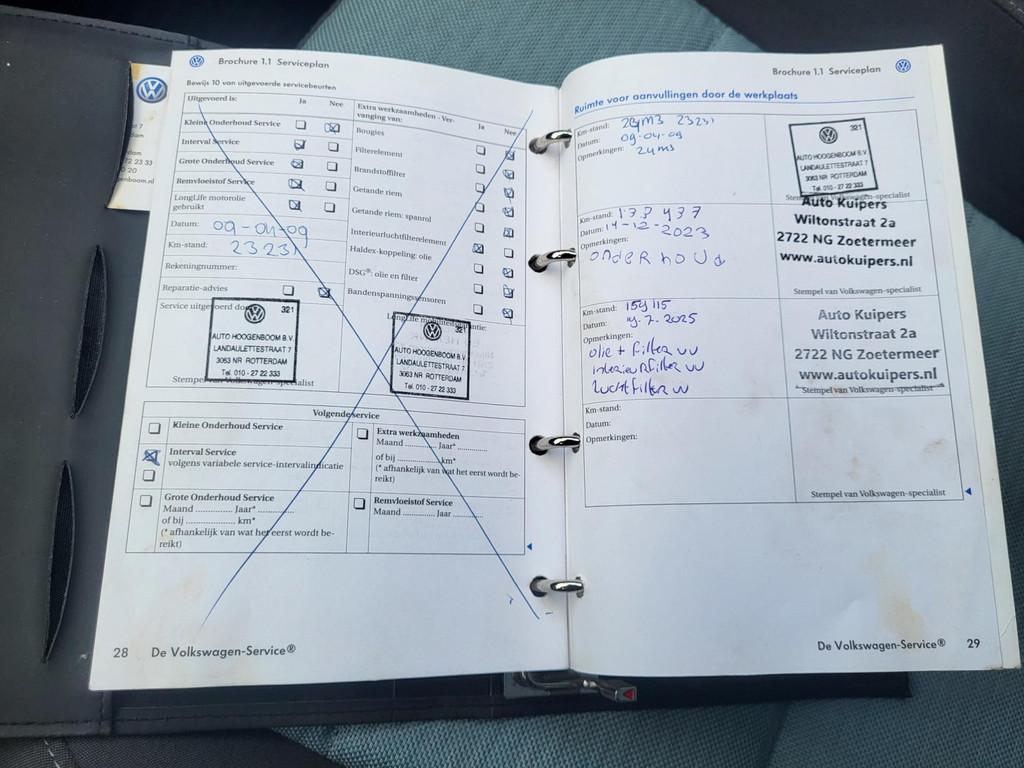 Brochure 1.1 Serviceplan
Bewijs 10 van uitgevoerde servicebeurten
Uitgevoerd is: Ja Nee
Kleine Onderhoud Service
Interval Service
Grote Onderhoud Service
Remvloeistof Service
LongLife motorolie
gebruikt
Datum: 09-04-09
Km-stand: 23231
Rekeningnummer:
Reparatie-advies
Extra werkzaamheden - Ver-
vanging van: Ja Nee
Bougies
Filterelement
Brandstoffilter
Getande riem
Getande riem: spanrol
Interieurluchtfilterelement
Haldex-koppeling: olie
DSG®: olie en filter
Bandenspanningssensoren
Service uitgevoerd door
321
AUTO HOOGENBOOM B.V.
LANDAULETTESTRAAT 7
3063 NR ROTTERDAM
Tel. 010 - 27 22 333
Stempel van Volkswagen-specialist
321
AUTO HOOGENBOOM B.V.
LANDAULETTESTRAAT 7
3063 NR ROTTERDAM
Tel. 010 - 27 22 333
Volgende service
Kleine Onderhoud Service
Interval Service
volgens variabele service-intervalindicatie
Grote Onderhoud Service
Maand ............ Jaar*............
of bij .................... km*
(* afhankelijk van wat het eerst wordt be-
reikt)
Extra werkzaamheden
Maand ............ Jaar* ............
of bij ....................km*
(* afhankelijk van wat het eerst wordt be-
reikt)
Remvloeistof Service
Maand ............ Jaar ............
28 De Volkswagen-Service®
Brochure 1.1 Serviceplan
Ruimte voor aanvullingen door de werkplaats
Km-stand: 23231
Datum: 09-04-09
Opmerkingen:
321
AUTO HOOGENBOOM B.V.
LANDAULETTESTRAAT 7
3063 NR ROTTERDAM
Tel. 010 - 27 22 333
Stempel van Volkswagen-specialist
Km-stand: 133 437
Datum: 14-12-2023
Opmerkingen:
onderhoud
Auto Kuipers
Wiltonstraat 2a
2722 NG Zoetermeer
www.autokuipers.nl
Stempel van Volkswagen-specialist
Km-stand: 159115
Datum: 7-2025
Opmerkingen:
olie + filter vv
interieurfilter vv
luchtfilter vv
Auto Kuipers
Wiltonstraat 2a
2722 NG Zoetermeer
www.autokuipers.nl
Stempel van Volkswagen-specialist
Km-stand:
Datum:
Opmerkingen:
Stempel van Volkswagen-specialist
De Volkswagen-Service® 29